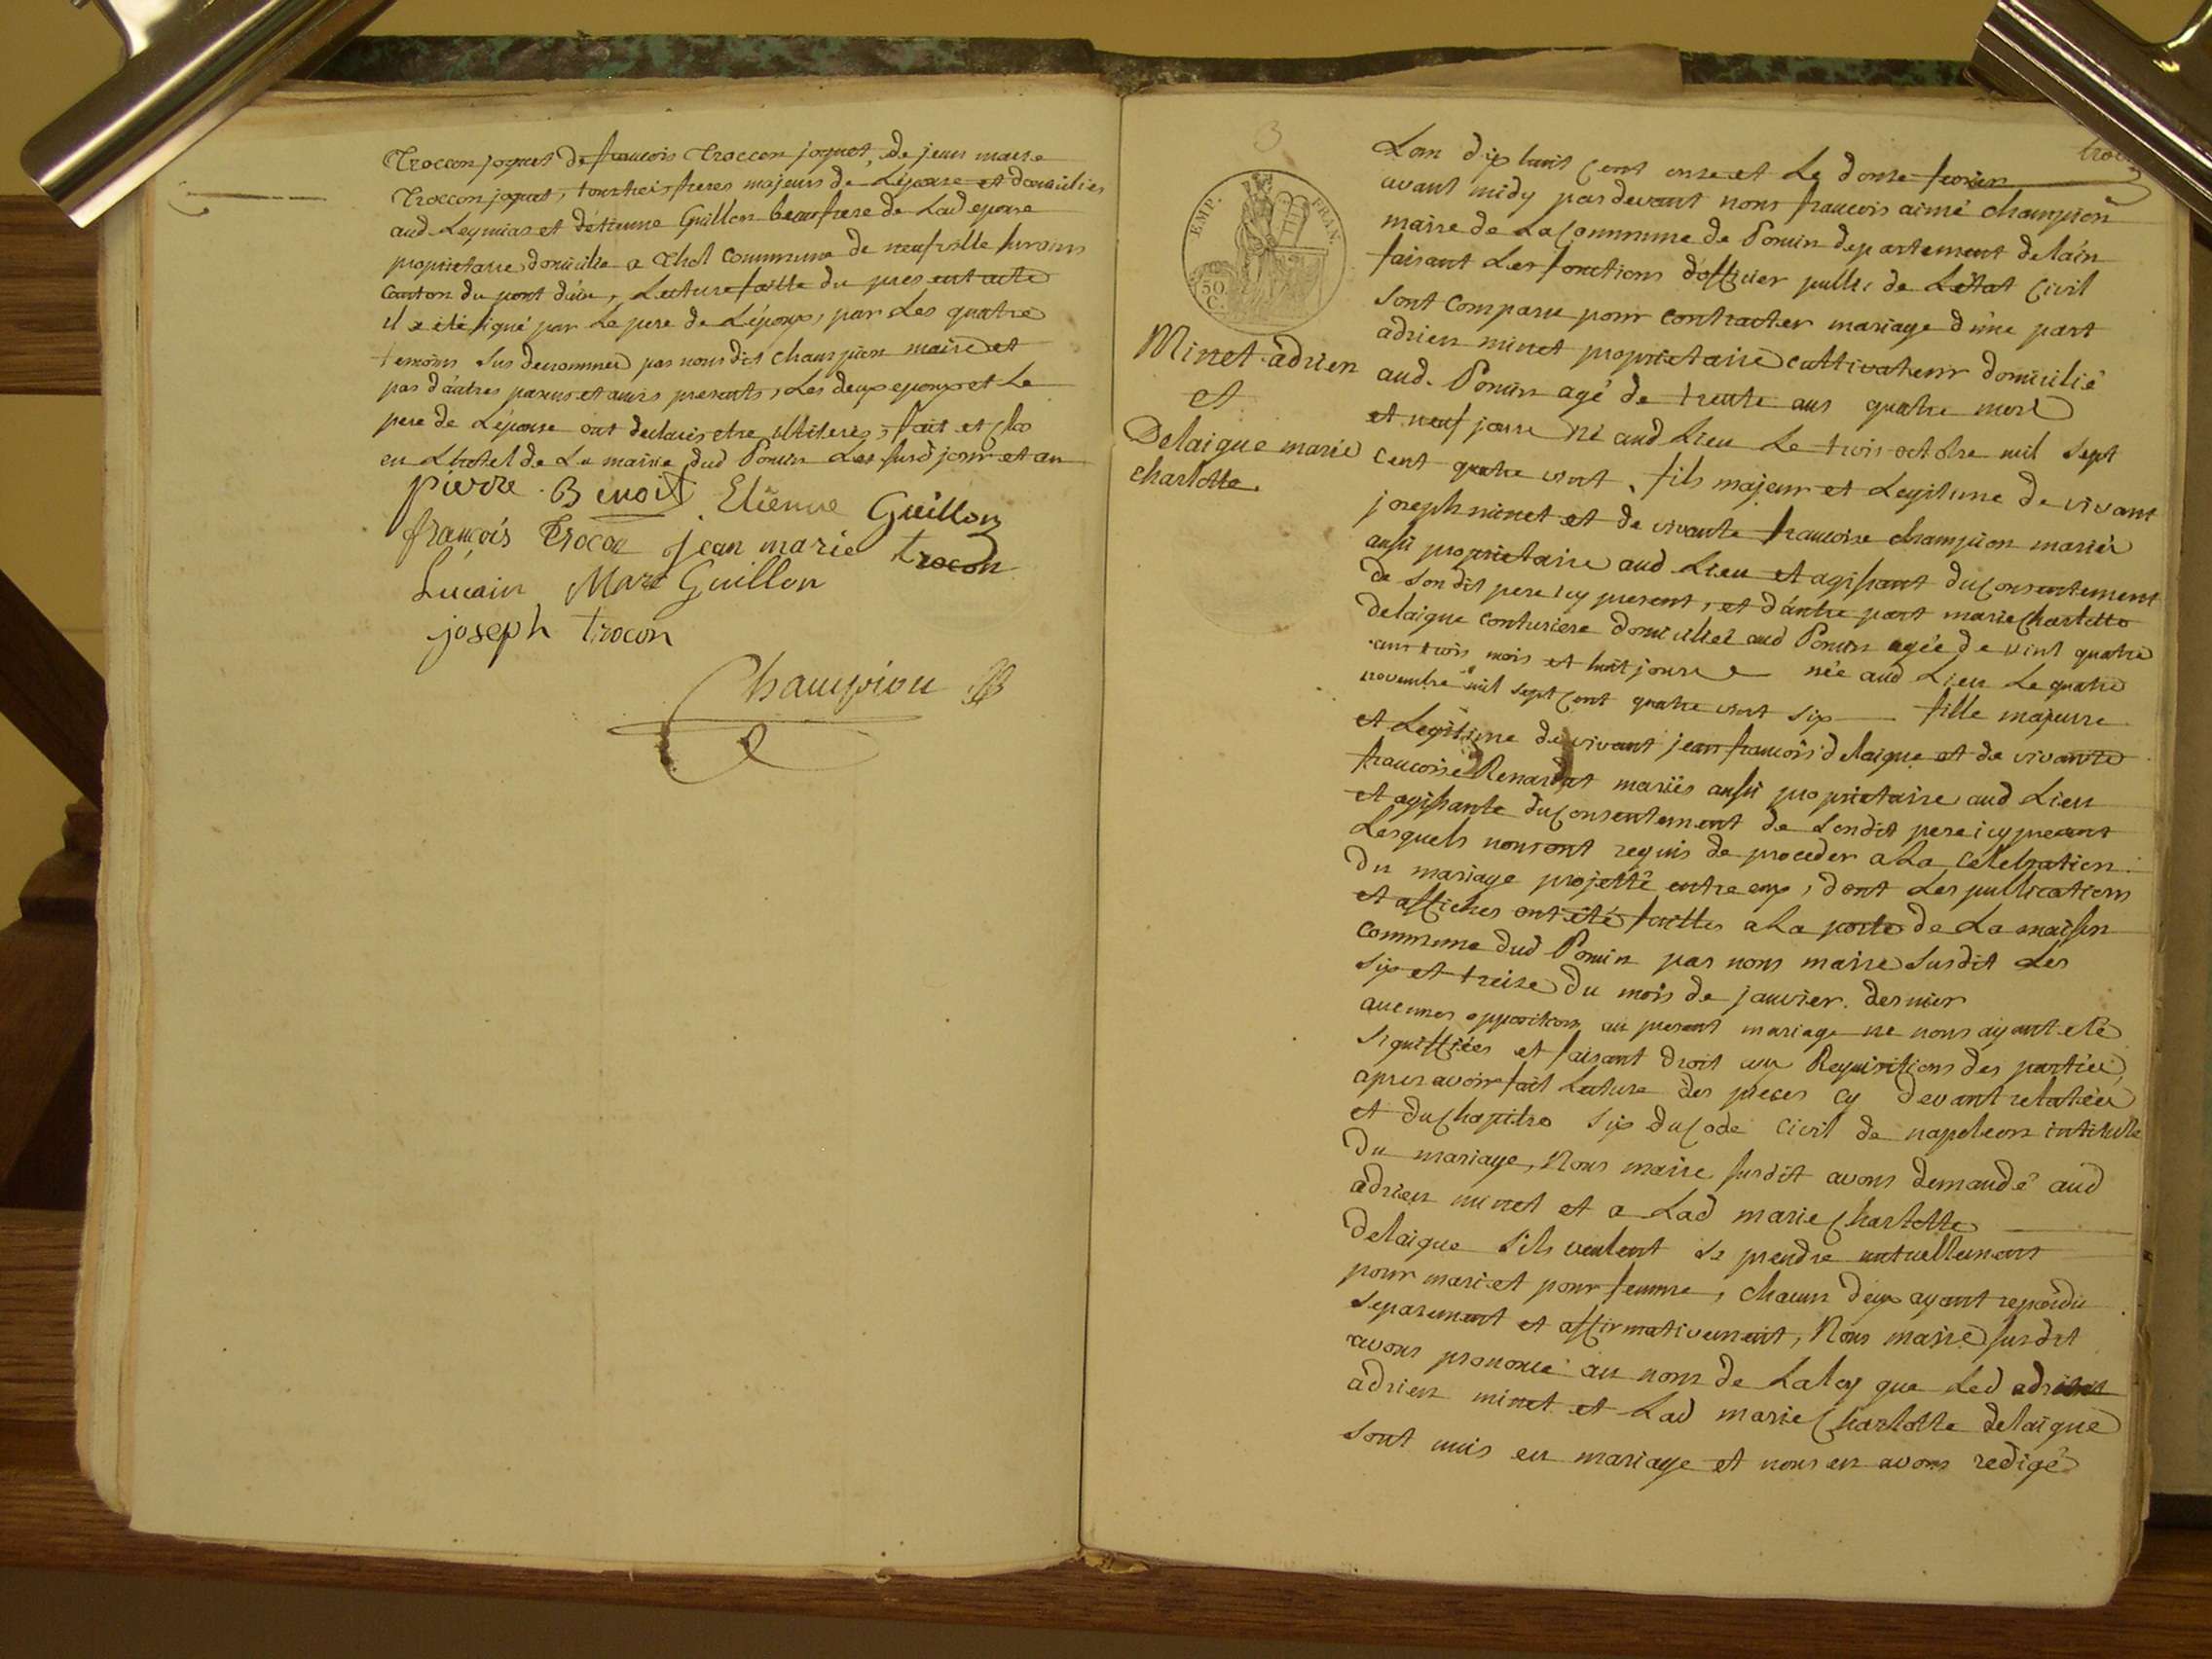 Troccon joquet de francois Troccon joquet, de jean marie
Troccon joquet, tous trois freres majeurs de Lépouse et domiciliés
aud Leymias et détienne Guillon beaufrere de Lad epouse
proprietaire domicilié a Thol Commune de neufville surains
Canton du pont dain, Lecture faitte du present acte
il a été signé par Le pere de Lépoux, par Les quatre
temoins sus denommés par nous dit Champion maire et
pas dautres parens et amis presents, Les deux epoux et Le
pere de Lépouse ont declarés etre illiterés, fait et clos
en Lhotel de La mairie dud Poncin Les susd jour et an
pierre Benoit Etienne Guillon
françois Trocon jean marie trocon
Lucain Marc Guillon
joseph trocon
Champion
3
EMP. FRAN.
50 C.
Minet adrien
et
Delaigue marie
charlotte.
Lan dix huit cent onze et Le douze fevrier
avant midy pardevant nous francois aimé champion
maire de La Commune de Poncin departement de lain
faisant Les fonctions dofficier public de Létat Civil
sont comparu pour contracter mariage dune part
adrien minet proprietaire cultivateur domicilié
aud. Poncin agé de trente ans quatre mois
et neuf jours né aud Lieu Le trois octobre mil sept
cent quatre vint, fils majeur et Legitime de vivant
joseph minet et de vivante francoise champion mariés
aussi proprietaire aud Lieu et agissant du Consentement
de son dit pere icy present, et dautre part marie Charlotte
delaigue couturiere domiciliée aud Poncin agée de vint quatre
ans trois mois et huit jours née aud Lieu Le quatre
novembre mil sept Cent quatre vint six fille majeure
et Legitime de vivant jean francois delaigue et de vivante
francoise Renardat mariés aussi proprietaire aud Lieu
et agissante du Consentement de son dit pere icy present
Lesquels nous ont requis de proceder a La Celebration
du mariage projetté entre eux, dont Les publications
et affiches ont été faittes a La porte de La maison
commune dud Poncin par nous maire susdit Les
six et treize du mois de janvier dernier
aucunes opposition au present mariage ne nous ayant été
signiffiées et faisant droit aux Requisitions des parties,
apres avoir fait Lecture des pieces cy devant relatées
et du Chapitre six du Code Civil de napoleon intitulé
du mariage, Nous maire susdit avons demandé aud
adrien minet et a Lad marie Charlotte
delaigue s'ils veulent se prendre mutuellement
pour mari et pour femme, chacun deux ayant repondu
separement et affirmativement, Nous maire susdit
avons prononcé au nom de La loy que Led adrien
adrien minet et Lad marie Charlotte delaigue
sont unis en mariage et nous en avons redigé